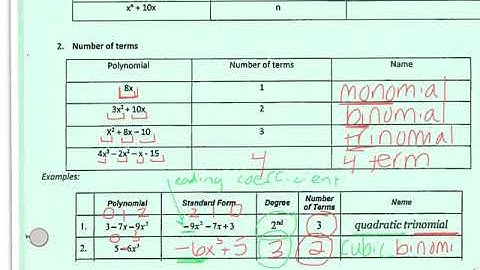 xⁿ + 10x n
2. Number of terms
Polynomial Number of terms Name
8x 1 monomial
3x² + 10x 2 binomial
X² + 8x – 10 3 trinomial
4x³ – 2x² – x - 15 4 4 term
leading coefficient
Examples:
Polynomial Standard Form Degree Number of Terms Name
0 1 2 2 1 0
1. 3 – 7x – 9x² –9x² – 7x + 3 2nd 3 quadratic trinomial
0 3
2. 5 – 6x³ -6x³ + 5 3 2 cubic binomi